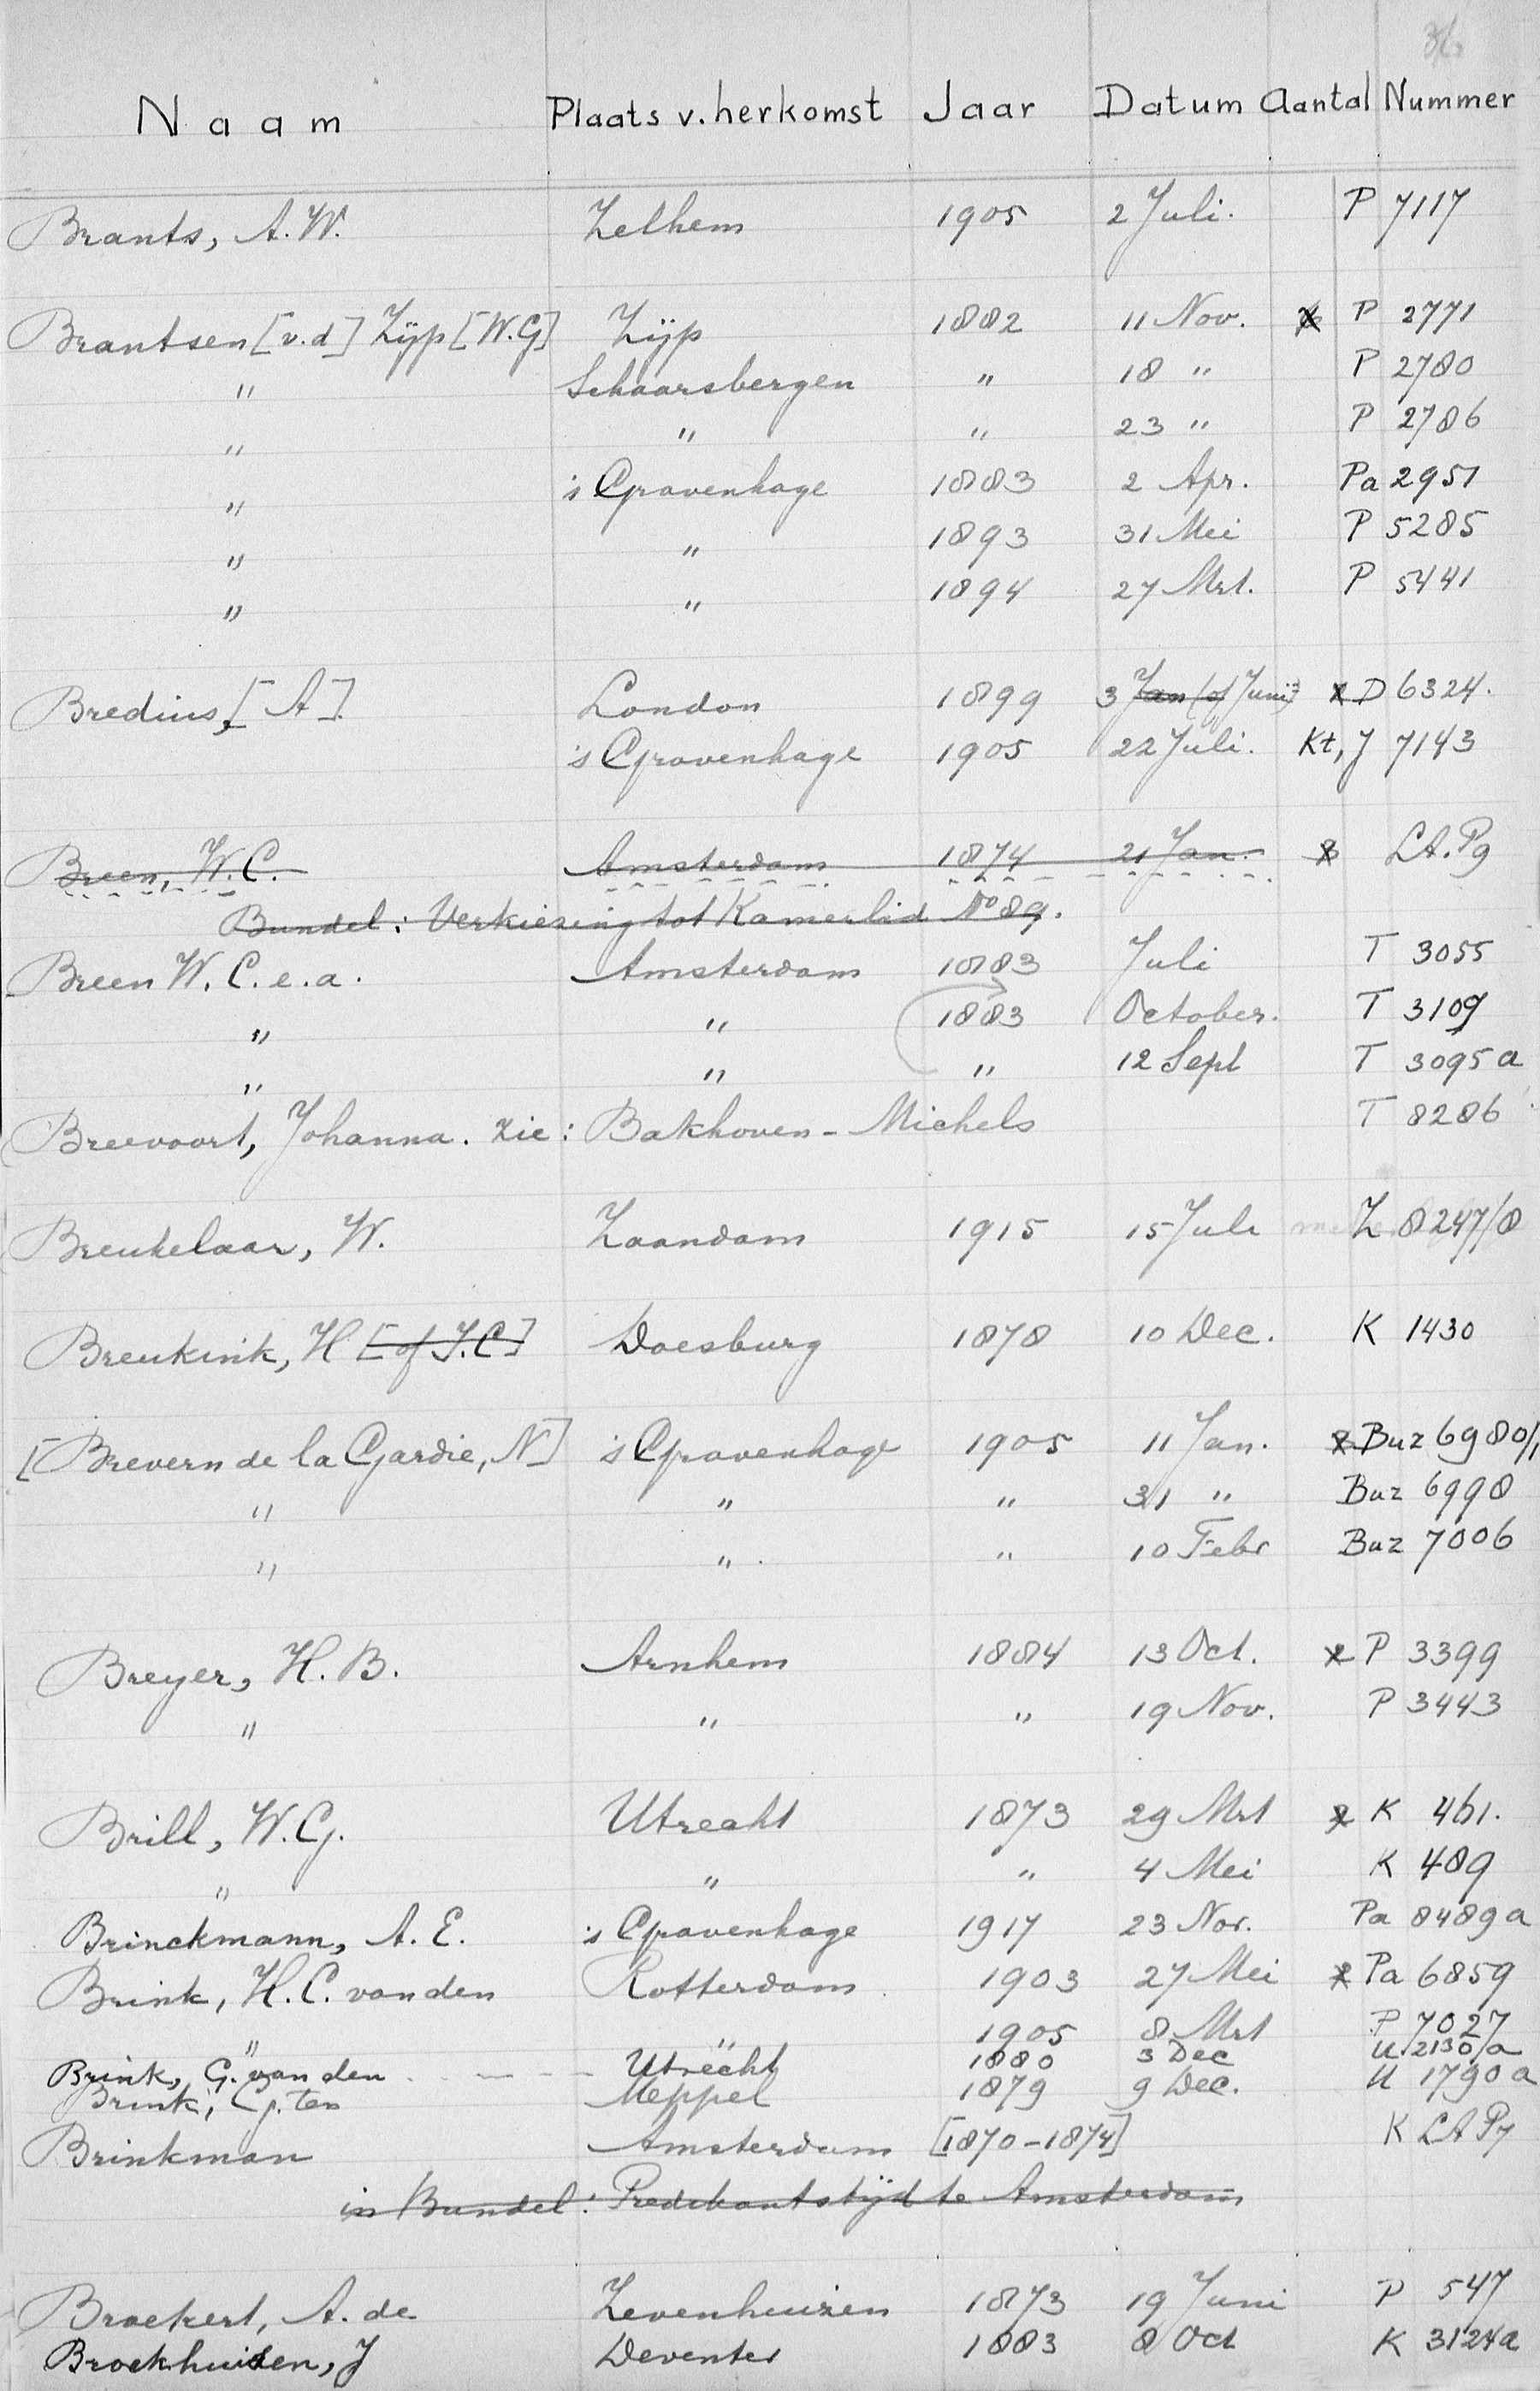 36
Naam Plaats v. herkomst Jaar Datum Aantal Nummer
Brants, A.W. Zelhem 1905 2 Juli. P 7117
Brantsen [v.d] Zijp [W.G] Zijp 1882 11 Nov. P 2771
" Schaarsbergen " 18 " P 2780
" " " 23 " P 2786
" 's Gravenhage 1883 2 Apr. Pa 2951
" " 1893 31 Mei P 5285
" " 1894 27 Mrt. P 5441
Bredius, [A] London 1899 3 Jan (of Juni) D 6324.
's Gravenhage 1905 22 Juli. Kt, J 7143
Breen, W.C. Amsterdam 1874 21 Jan. LA. Pg
Bundel: Verkiesing tot Kamerlid No 89.
Breen W. C. e. a. Amsterdam 1883 Juli T 3055
" " 1883 October. T 3109
" " " 12 Sept T 3095 a
Breevoort, Johanna. zie: Bakhoven - Michels T 8286
Breukelaar, W. Zaandam 1915 15 Juli Z 8247/8
Breukink, H [of J.C] Doesburg 1878 10 Dec. K 1430
[Brevern de la Gardie, N] 's Gravenhage 1905 11 Jan. Buz 6980/1
" " " 31 " Buz 6998
" " " 10 Febr Buz 7006
Breyer, H.B. Arnhem 1884 13 Oct. P 3399
" " " 19 Nov. P 3443
Brill, W.G. Utrecht 1873 29 Mrt K 461.
" " " 4 Mei K 489
Brinckmann, A. E. 's Gravenhage 1917 23 Nov. Pa 8489 a
Brink, H.C. van den Rotterdam 1903 27 Mei Pa 6859
" " 1905 8 Mrt P 7027
Brink, G. van den Utrecht 1880 3 Dec U 2130/a
Brink, G. ten Meppel 1879 9 Dec. U 1790 a
Brinkman Amsterdam [1870-1874] K LA Pg
in Bundel: Predikantstijd te Amsterdam
Broekert, A. de Zevenhuizen 1873 19 Juni P 547
Broekhuisen, J Deventer 1883 8 Oct K 3124a